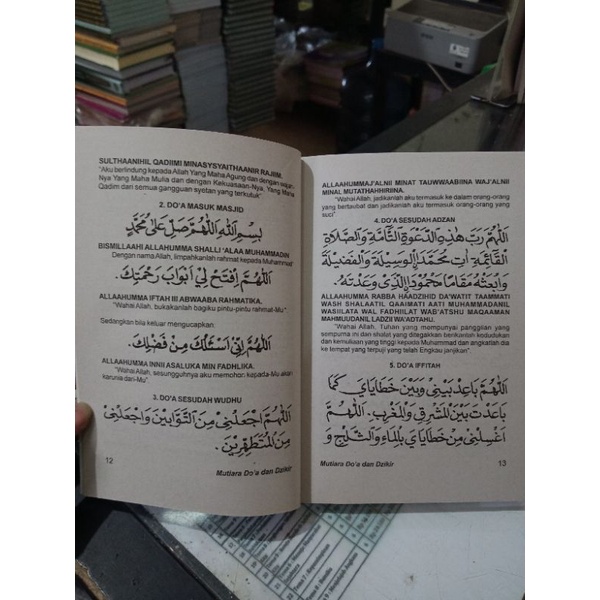 SULTHAANIHIL QADIIMI MINASYSYAITHAANIR RAJIIM.
"Aku berlindung kepada Allah Yang Maha Agung dan dengan wajah-
Nya Yang Maha Mulia dan dengan Kekuasaan-Nya, Yang Maha
Qadim dari semua gangguan syetan yang terkutuk"
2. DO'A MASUK MASJID
بِسْمِ اللهِ اَللّٰهُمَّ صَلِّ عَلَى مُحَمَّدٍ
BISMILLAAHI ALLAHUMMA SHALLI 'ALAA MUHAMMADIN
Dengan nama Allah, limpahkanlah rahmat kepada Muhammad"
اَللّٰهُمَّ افْتَحْ لِيْ اَبْوَابَ رَحْمَتِكَ.
ALLAAHUMMA IFTAH III ABWAABA RAHMATIKA.
"Wahai Allah, bukakanlah bagiku pintu-pintu rahmat-Mu"
Sedangkan bila keluar mengucapkan:
اَللّٰهُمَّ اِنِّيْ اَسْئَلُكَ مِنْ فَضْلِكَ.
ALLAAHUMMA INNII ASALUKA MIN FADHLIKA.
"Wahai Allah, sesungguhnya aku memohon kepada-Mu akan
karunia dari-Mu"
3. DO'A SESUDAH WUDHU
اَللّٰهُمَّ اجْعَلْنِيْ مِنَ التَّوَّابِيْنَ وَاجْعَلْنِيْ
مِنَ الْمُتَطَهِّرِيْنَ.
12
Mutiara Do'a dan Dzikir
ALLAAHUMMAJ'ALNII MINAT TAUWWAABIINA WAJ'ALNII
MINAL MUTATHAHHIRIINA.
"Wahai Allah, jadikanlah aku termasuk dalam orang-orang
yang bertaubat dan jadikanlah aku termasuk orang-orang yang
suci"
4. DO'A SESUDAH ADZAN
اَللّٰهُمَّ رَبَّ هٰذِهِ الدَّعْوَةِ التَّامَّةِ وَالصَّلَاةِ
الْقَائِمَةِ اٰتِ مُحَمَّدًا الْوَسِيْلَةَ وَالْفَضِيْلَةَ
وَابْعَثْهُ مَقَامًا مَحْمُوْدًا الَّذِيْ وَعَدْتَهُ.
ALLAAHUMMA RABBA HAADZIHID DA'WATIT TAAMMATI
WASH SHALAATIL QAAIMATI AATI MUHAMMADANIL
WASIILATA WAL FADHIILAT WAB'ATSHU MAQAAMAN
MAHMUUDANIL LADZII WA'ADTAHU.
"Wahai Allah, Tuhan yang mempunyai panggilan yang
sempurna ini dan shalat yang ditegakkan berikanlah kedudukan
dan kemuliaan yang tinggi kepada Muhammad dan angkatlah dia
ke tempat yang terpuji yang telah Engkau janjikan".
5. DO'A IFFITAH
اَللّٰهُمَّ بَاعِدْ بَيْنِيْ وَبَيْنَ خَطَايَايَ كَمَا
بَاعَدْتَ بَيْنَ الْمَشْرِقِ وَالْمَغْرِبِ. اَللّٰهُمَّ
اغْسِلْنِيْ مِنْ خَطَايَايَ بِالْمَاءِ وَالثَّلْجِ وَ
Mutiara Do'a dan Dzikir
13